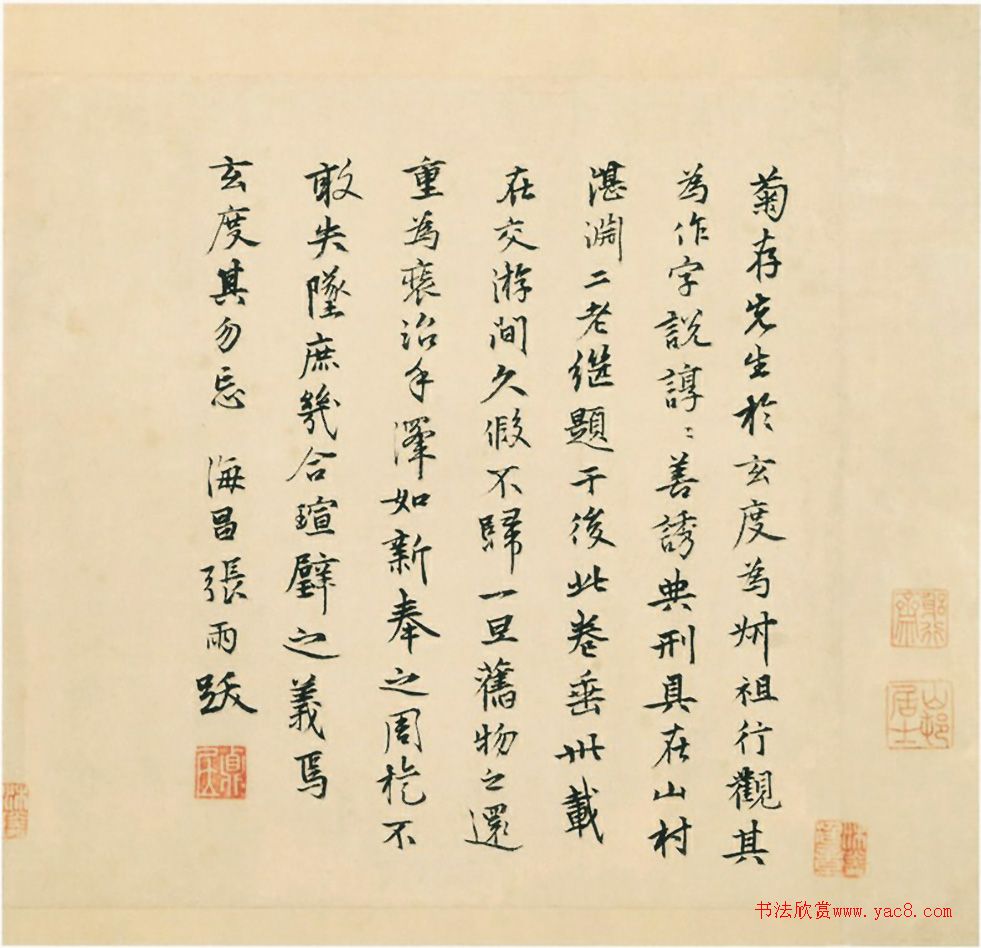 菊存先生於玄度為叔祖行觀其
為作字說諄〻善誘典刑具在山村
湛淵二老继題于後此卷垂卅載
在交游間久假不歸一旦舊物之還
重為裝治手澤如新奉之周旋不
敢失墜庶幾合瑄璧之義焉
玄度其勿忘 海昌張雨跋
山邨居士
书法欣赏www.yac8.com